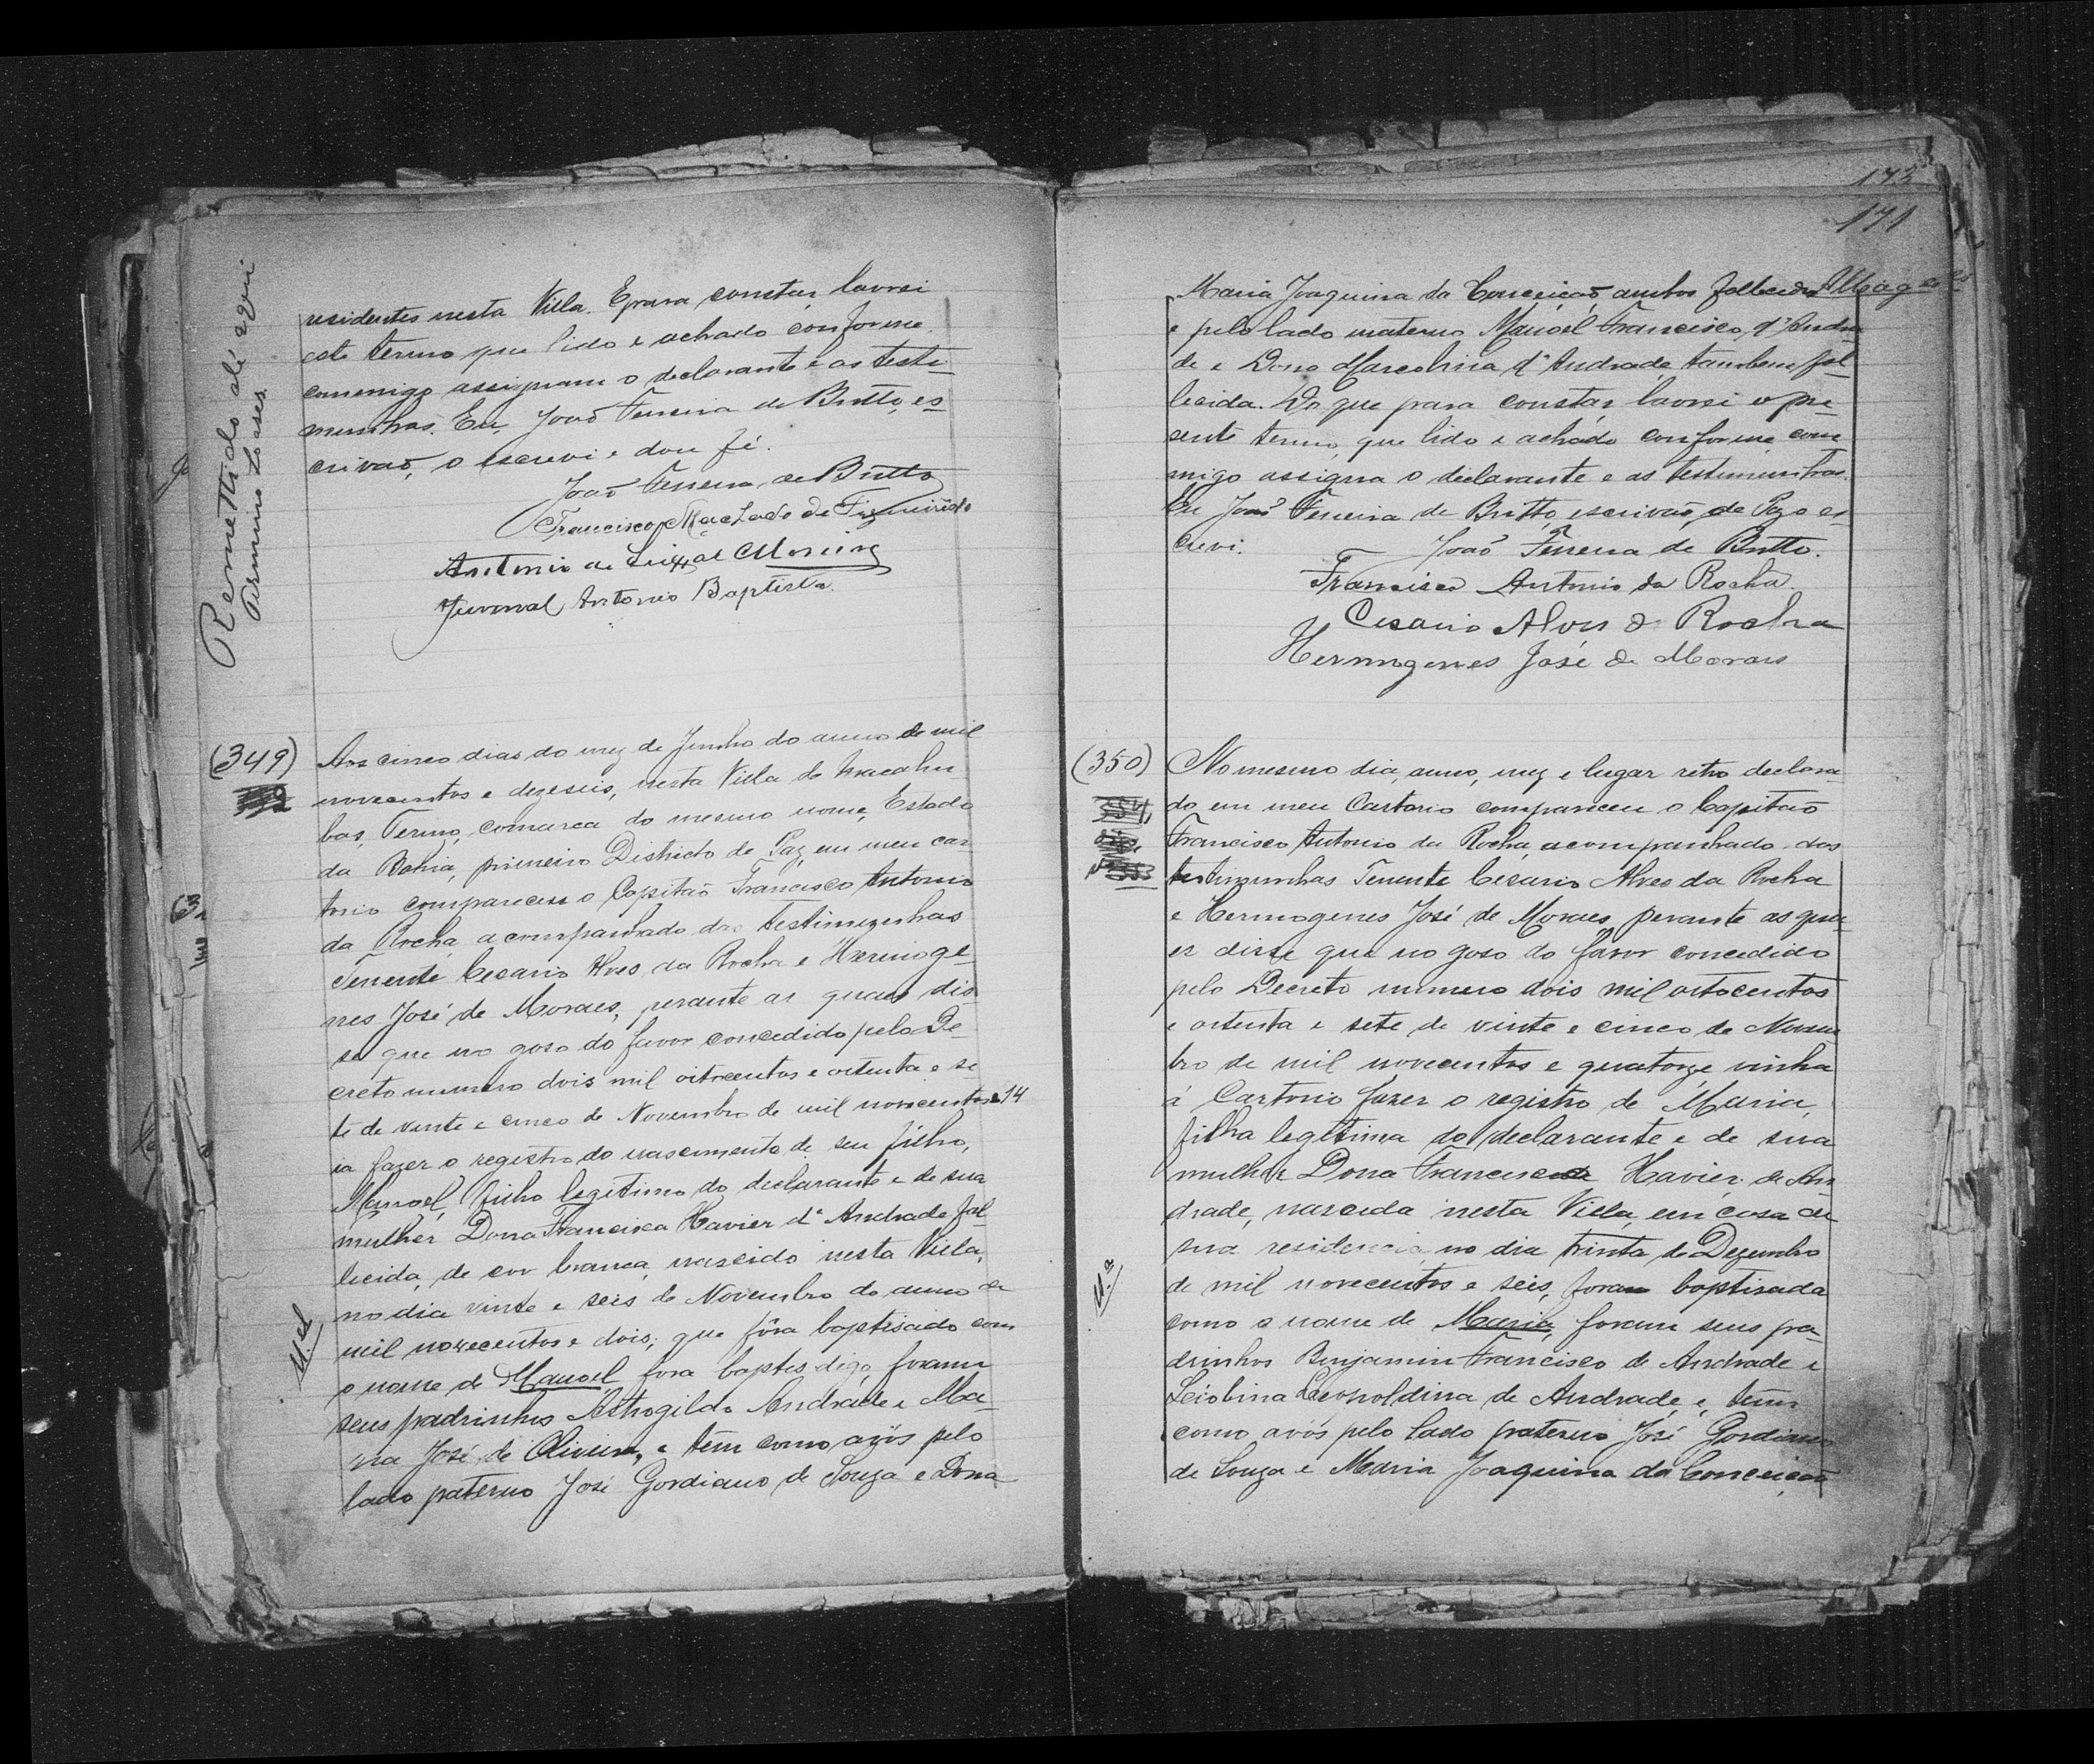 Remettido até aqui
residentes nesta Villa. E para constar lavrei
este termo que lido e achado conforme
commigo assignam o declarante e as teste-
munhas. Eu, João Ferreira de Britto, es-
crivão, o escrevi e dou fé.
João Ferreira de Britto
Francisco Machado de Figueirêdo
Antonio de
Juvenal Antonio Baptista.
(349)
Aos cinco dias do mez de Junho do anno de mil
novecentos e dezeseis, nesta Villa de Macahu-
bas, Termo, comarca do mesmo nome, Estado
da Bahia, primeiro Districto de Paz, em meu car-
torio compareceu o Capitão Francisco Antonio
da Rocha, acompanhado das testimunhas
Tenente Cesario Alves da Rocha e Hermoge-
nes José de Moraes, perante as quaes dis-
se que no goso do favor concedido pelo De-
creto numero dois mil oitocentos e oitenta e se-
te de vinte e cinco de Novembro de mil novecentos e 14
ia fazer o registro do nascimento de seu filho,
Manoel, filho legitimo do declarante e de sua
mulher Dona Francisca Xavier d'Andrade fal-
lecida, de cor branca, nascido nesta Villa,
no dia vinte e seis de Novembro do anno de
mil novecentos e dois; que fôra baptisado com
o nome de Manoel fora baptis digo, foram
seus padrinhos Astrogildo Andrade e Ma-
ria José de Oliveira, e têm como avós pelo
lado paterno José Gordiano de Souza e Dona
M.el
63
173
171
Maria Joaquina da Conceição, ambos fallecidos
e pelo lado materno Manoel Francisco d'Andra-
de e Dona Marcolina d'Andrade, tambem fal-
lecida. Do que para constar, lavrei o pre-
sente termo, que lido e achado conforme, com
migo assigna o declarante e as testemunhas.
Eu João Ferreira de Britto, escrivão de Paz es-
crevi.
João Ferreira de Britto.
Francisco Antonio da Rocha.
Cesario Alves da Rocha
Hermogenes José de Moraes
(350)
No mesmo dia, anno, mez e lugar retro declara-
do em meu Cartorio compareceu o Capitão
Francisco Antonio da Rocha, acompanhado das
testimunhas Tenente Cesario Alves da Rocha
e Hermogenes José de Moraes, perante as qua-
es disse que no goso do favor concedido
pelo Decreto numero dois mil oitocentos
e oitenta e sete de vinte e cinco de Novem-
bro de mil novecentos e quatorze vinha
á Cartorio fazer o registro de Maria,
filha legitima do declarante e de sua
mulher Dona Francisca Xavier de An-
drade, nascida nesta Villa, em casa de
sua residencia, no dia trinta de Dezembro
de mil novecentos e seis, foram baptisada
como o nome de Maria, foram seus pa-
drinhos Benjamin Francisco de Andrade e
Leopoldina de Andrade, e, têm
como avós pelo lado paterno José Gordiano
de Souza e Maria Joaquina da Conceição
M.a